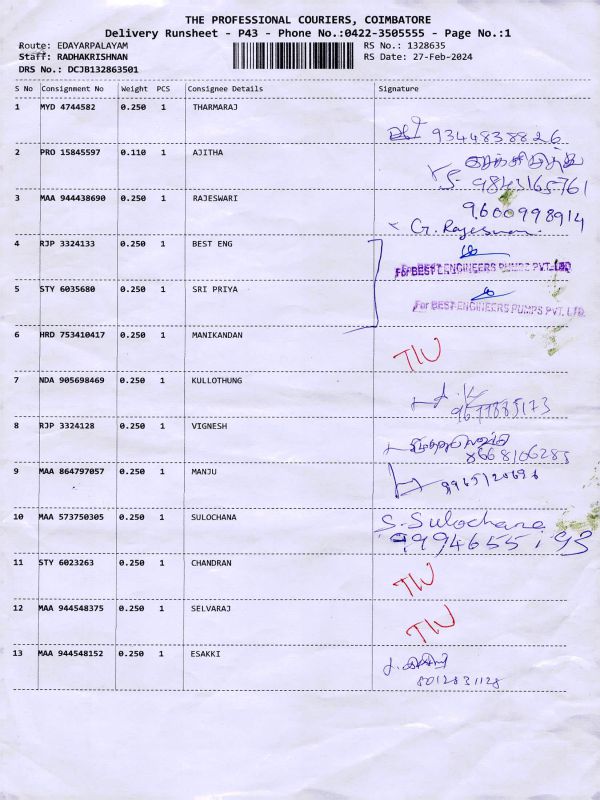 THE PROFESSIONAL COURIERS, COIMBATORE
Delivery Runsheet - P43 - Phone No.:0422-3505555 - Page No.:1
Route: EDAYARPALAYAM RS No.: 1328635
Staff: RADHAKRISHNAN RS Date: 27-Feb-2024
DRS No.: DCJB132863501
S No Consignment No Weight PCS Consignee Details Signature
1 MYD 4744582 0.250 1 THARMARAJ
9344838826
2 PRO 15845597 0.110 1 AJITHA
9843165761
3 MAA 944438690 0.250 1 RAJESWARI
9600998914
G. Rajeswari
4 RJP 3324133 0.250 1 BEST ENG
For BEST ENGINEERS PUMPS PVT. LTD.
5 STY 6035680 0.250 1 SRI PRIYA
For BEST ENGINEERS PUMPS PVT. LTD.
6 HRD 753410417 0.250 1 MANIKANDAN
7 NDA 905698469 0.250 1 KULLOTHUNG
8 RJP 3324128 0.250 1 VIGNESH
8668106285
9 MAA 864797057 0.250 1 MANJU
10 MAA 573750305 0.250 1 SULOCHANA
S. Sulochana
9994655193
11 STY 6023263 0.250 1 CHANDRAN
12 MAA 944548375 0.250 1 SELVARAJ
13 MAA 944548152 0.250 1 ESAKKI
8012831128